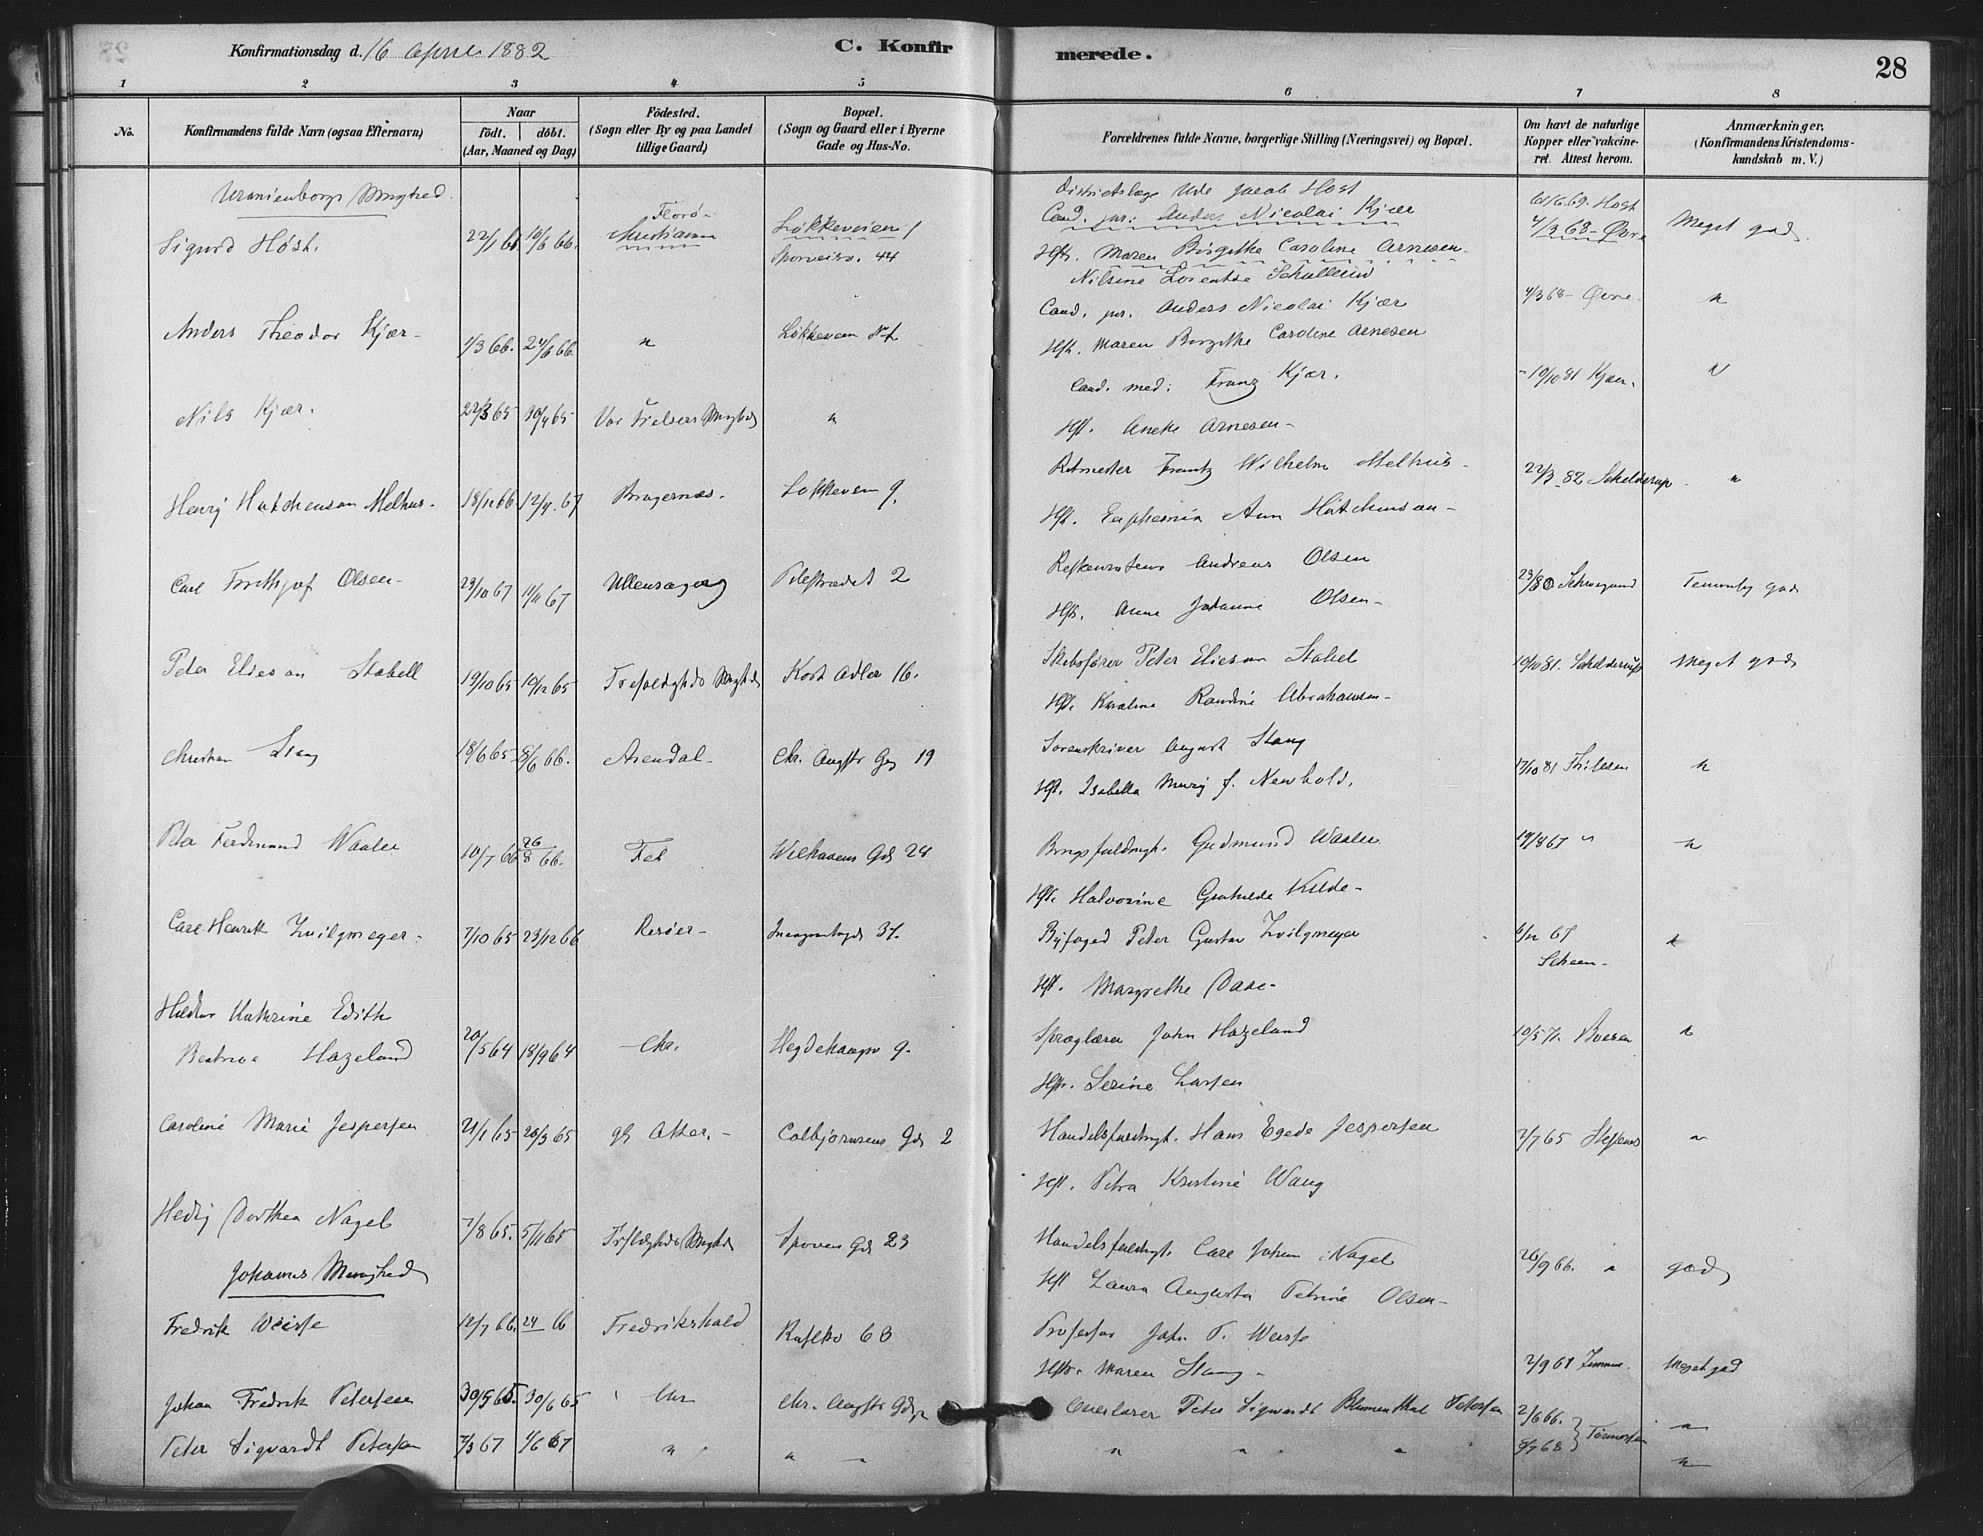 Konfirmationsdag d. 16 April 1882
C. Konfirmerede.
28
1 2 3 4 5 6 7 8
No.
Konfirmandens fulde Navn (ogsaa Efternavn)
Naar
födt. döbt.
(Aar, Maaned og Dag)
Födested.
(Sogn eller By og paa Landet
tillige Gaard)
Bopæl.
(Sogn og Gaard eller i Byerne
Gade og Hus-No.
Forældrenes fulde Navne, borgerlige Stilling (Næringsvei) og Bopæl.
Om havt de naturlige
Kopper eller vakcine-
ret. Attest herom.
Anmærkninger.
(Konfirmandens Kristendoms-
kundskab m. V.)
Uranienborgs Menighed.
Jacob Høst
Cand. jur. Anders Nicolai Kjær
Sigurd Høst. 22/1 66 Florø Kristiania Løkkeveien 1 4/3 68 Meget god.
Sporveisv. 44
Hst. Maren Birgithe Caroline Arnesen
Nilsine Lorentse
Cand. jur. Anders Nicolai Kjær 4/3 68 "
Anders Theodor Kjær 1/3 66. 24/6 66. " Løkkeveien
Hst. Maren Birgithe Caroline Arnesen
Cand. med. Franz Kjær. 19/10 81 Kjær. "
Nils Kjær. 22/3 65 30/4 65 Vor Frelsers Mnghd "
Hst. Aneke Arnesen
Ritmester Frantz Wilhelm Melhus 22/3 82 Schelderup "
Henry Hutchenson Melhus. 18/12 66. 12/4 67 Bragernæs. Løkkeveien 9.
Hst. Euphemia Ann Hutchinson
Restaurateur Andreas Olsen
Carl Frithjof Olsen 29/10 67 11/11 67 Ullensager Pilestrædet 2 Schwegaard Temmelig god
Hst. Anne Johanne Olsen
Skibsfører Peter Eliesen Stabel
Peter Eliesen Stabell 19/10 65 10/12 65 Trefoldigheds Mnghd Kort Adler 16. 19/10 81. Schelderup Meget god
Hst. Karoline Randine Abrahamsen
Sorenskriver August Stang
Christian Stang 18/6 65 8/6 66. Arendal Chr. Augsts Gd 19 17/10 81 "
Hst. Isabella Mary f. Newbold.
Peter Ferdinand Waaler 10/7 66 26/8 66. Fet Welhavens Gd 24 Gudmund Waaler 19/8 67 " "
Hst. Halvorine Gunhilde Kilde
Carl Henrik Zwilgmeyer 7/10 65 23/12 66 Risøer 37. Byfoged Peter Gustav Zwilgmeyer 6/12 67 "
Hst. Margrethe Daae
Hilda Kathrine Edith
Beatrice Hazeland 20/5 64 18/9 64 Chr. Hegdehaugsv 9. Sproglærer John Hazeland 10/5 71. "
Hst. Serine Larsen
Caroline Marie Jespersen 21/1 65 26/3 65 Aker. Colbjørnsens Gd 2 Handelsfuldmgt. Hans Egede Jespersen 2/7 65 "
Hst. Petra Kristine Wang
Hedvig Dorthea Nagel 7/8 65. 5/11 65 Trefoldigheds Mnghd Sporveis Gd 23 Handelsfuldmgt. Carl Johan Nagel 26/9 66. " god
Hst Laura Augusta Petrine Olsen
Johannes Menighed
Fredrik Weisse 12/7 66. 66 Fredrikshald 63 Professor John P. Weisse
Hst. Maren Stang. 2/9 67 Meget god
Johan Fredrik Petersen 30/5 65. 30/6 65 Chr Chr. Augsts Gd Overlærer Peter Sigvardt Blumenthal Petersen 2/6 66. "
Peter Sigvardt Petersen 7/3 67 1/6 67 " " " " " 8/7 68 "